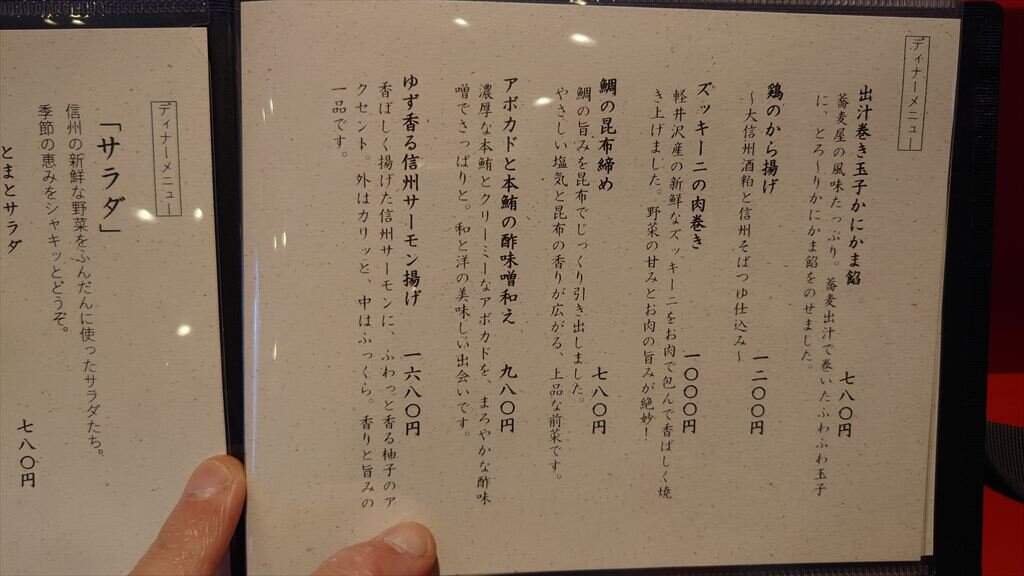 ディナーメニュー
出汁巻き玉子かにかま餡 七八〇円
蕎麦屋の風味たっぷり。蕎麦出汁で巻いたふわふわ玉子
に、とろ～りかにかま餡をのせました。
鶏のから揚げ 一二〇〇円
～大信州酒粕と信州そばつゆ仕込み～
ズッキーニの肉巻き 一〇〇〇円
軽井沢産の新鮮なズッキーニをお肉で包んで香ばしく焼
き上げました。野菜の甘みとお肉の旨みが絶妙！
鯛の昆布締め 七八〇円
鯛の旨みを昆布でじっくり引き出しました。
やさしい塩気と昆布の香りが広がる、上品な前菜です。
アボカドと本鮪の酢味噌和え 九八〇円
濃厚な本鮪とクリーミーなアボカドを、まろやかな酢味
噌でさっぱりと。和と洋の美味しい出会いです。
ゆず香る信州サーモン揚げ 一六八〇円
香ばしく揚げた信州サーモンに、ふわっと香る柚子のア
クセント。外はカリッと、中はふっくら。香りと旨みの
一品です。
ディナーメニュー
「サラダ」
信州の新鮮な野菜をふんだんに使ったサラダたち。
季節の恵みをシャキッとどうぞ。
とまとサラダ 七八〇円